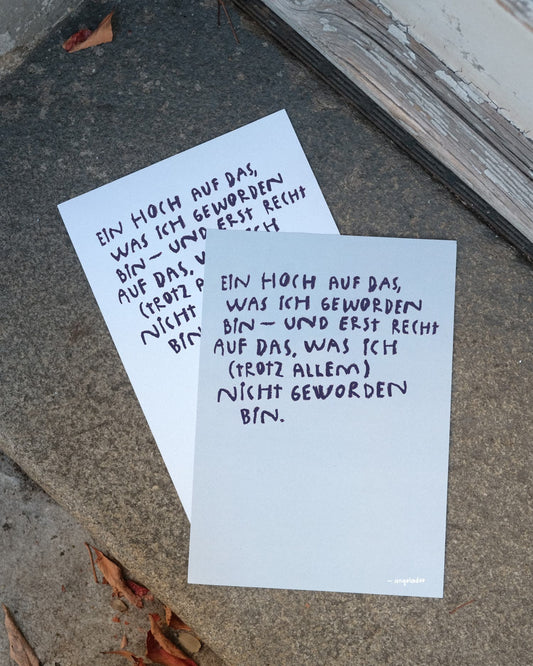 EIN HOCH AUF DAS,
WAS ICH GEWORDEN
BIN – UND ERST RECHT
AUF DAS, W ICH
(TROTZ A
NICHT
BIN
EIN HOCH AUF DAS,
WAS ICH GEWORDEN
BIN – UND ERST RECHT
AUF DAS, WAS ICH
(TROTZ ALLEM)
NICHT GEWORDEN
BIN.